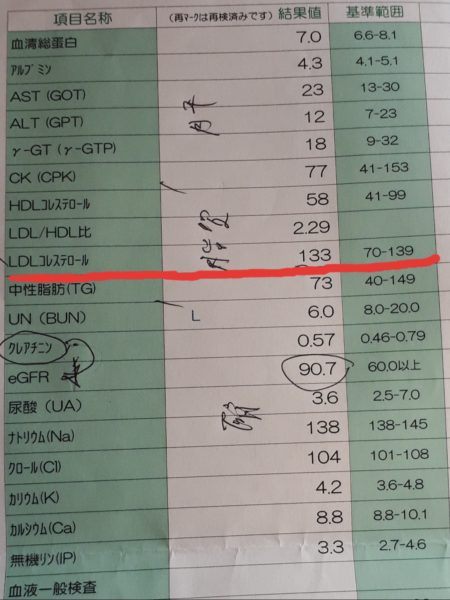 項目名称 (再マークは再検済みです) 結果値 基準範囲
血清総蛋白 7.0 6.6-8.1
ｱﾙﾌﾞﾐﾝ 4.3 4.1-5.1
AST (GOT) 23 13-30
ALT (GPT) 12 7-23
γ-GT (γ-GTP) 18 9-32
CK (CPK) 77 41-153
HDLｺﾚｽﾃﾛｰﾙ 58 41-99
LDL/HDL比 2.29
LDLｺﾚｽﾃﾛｰﾙ 133 70-139
中性脂肪(TG) 73 40-149
UN (BUN) L 6.0 8.0-20.0
ｸﾚｱﾁﾆﾝ 0.57 0.46-0.79
eGFR 90.7 60.0以上
尿酸 (UA) 3.6 2.5-7.0
ﾅﾄﾘｳﾑ(Na) 138 138-145
ｸﾛｰﾙ(Cl) 104 101-108
ｶﾘｳﾑ(K) 4.2 3.6-4.8
ｶﾙｼｳﾑ(Ca) 8.8 8.8-10.1
無機リン(IP) 3.3 2.7-4.6
血液一般検査